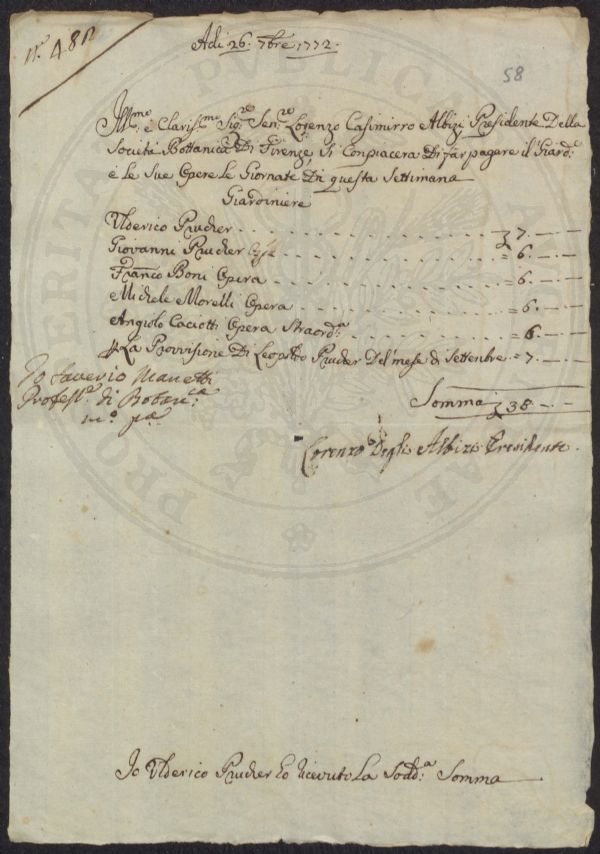 nº. 480
Adi 26. 7bre 1772.
58
Ill.mo e Claris.mo Sig.re Sen.re Lorenzo Casimirro Albizi Presidente Della
Società Bottanica Di Firenze, Si Conpiacera Di far pagare il Giard.e
e le Sue Opere le Giornate Di questa Settimana
Giardiniere
Ulderico Prucker 7.
Giovanni Prucker = 6.
Fran.co Boni Opera = 6.
Michele Morelli Opera = 6.
Angiolo Caciotti Opera Straord.a = 6.
La Provvisione Di Leop.do Prucker Del mese di Settenbre = 7.
Io Saverio Manetti
Profess.e di Botan.ca
m.o p.a
Somma 38.
Lorenzo Degli Albizi Presidente.
Io Ulderico Prucker ho ricevuto La Sodd.a Somma
PRO VERITATE
PUBLICA